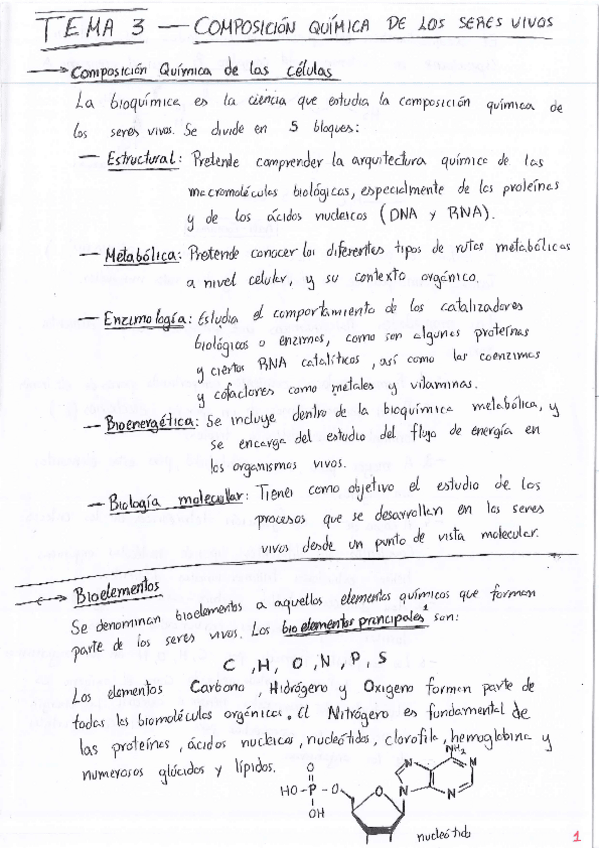 TEMA 3 — COMPOSICIÓN QUÍMICA DE LOS SERES VIVOS
→ Composición Química de las células
La bioquímica es la ciencia que estudia la composición química de
los seres vivos. Se divide en 5 bloques:
— Estructural: Pretende comprender la arquitectura química de las
macromoléculas biológicas, especialmente de las proteínas
y de los ácidos nucleicos (DNA y RNA).
— Metabólica: Pretende conocer los diferentes tipos de rutas metabólicas
a nivel celular, y su contexto orgánico.
— Enzimología: Estudia el comportamiento de los catalizadores
biológicos o enzimas, como son algunas proteínas
y ciertos RNA catalíticos, así como las coenzimas
y cofactores como metales y vitaminas.
— Bioenergética: Se incluye dentro de la bioquímica metabólica, y
se encarga del estudio del flujo de energía en
los organismos vivos.
— Biología molecular: Tienen como objetivo el estudio de los
procesos que se desarrollan en los seres
vivos desde un punto de vista molecular.
→ Bioelementos
Se denominan bioelementos a aquellos elementos químicos que forman
parte de los seres vivos. Los bioelementos principales son:
C, H, O, N, P, S
Los elementos Carbono, Hidrógeno y Oxígeno forman parte de
todas las biomoléculas orgánicas. El Nitrógeno es fundamental de
las proteínas, ácidos nucleicos, nucleótidos, clorofila, hemoglobina y
numerosos glúcidos y lípidos.
NH2
O
N
N
HO-P-O
O
N
N
OH
nucleótido
1